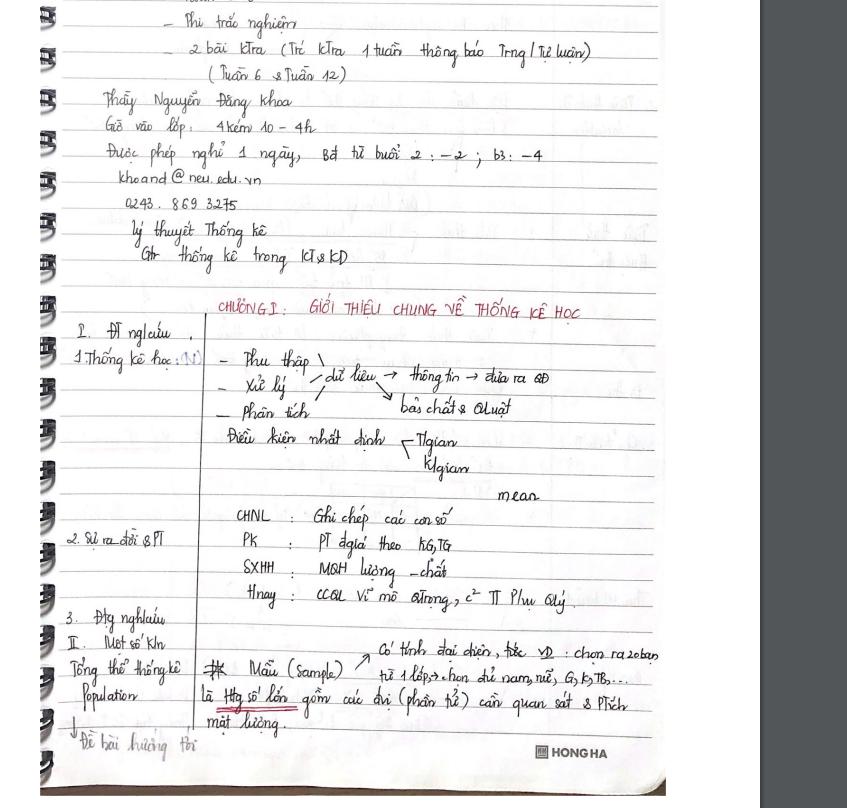 - Thi trắc nghiệm
- 2 bài kTra (Trc kTra 1 tuần thông báo Trng/Tự luận)
(Tuần 6 & Tuần 12)
Thầy Nguyễn Đăng Khoa
Giờ vào lớp: 4 kém 10 - 4h
Được phép nghỉ 1 ngày, Bđ từ buổi 2: -2; b3: -4
khoand@neu.edu.vn
0243. 869 3275
Lý thuyết Thống kê
Gtr thống kê trong KT & KD
CHƯƠNG I: GIỚI THIỆU CHUNG VỀ THỐNG KÊ HỌC
I. ĐT ng/cứu
1. Thống kê học: (N)
- Thu thập
- Xử lý
- Phân tích
dữ liệu → thông tin → đưa ra QĐ
bản chất & QLuật
Điều kiện nhất định
T/gian
K/gian
mean
CHNL : Ghi chép các con số
2. Sự ra đời & PT
PK : PT đgiá theo KG, TG
SXHH : MQH lượng - chất
Hnay : CCQL Vĩ mô QTrọng, c² TT Phục Qlý
3. Đtg nghiên cứu
II. Một số Kn
Tổng thể thống kê
Population
Đề bài hướng tới
Mẫu (Sample)
Có tính đại diện, tức VD: chọn ra 20 bạn
từ 1 lớp → chọn đủ nam, nữ, G, K, TB,...
là Htg số lớn gồm các đvị (phần tử) cần quan sát & PTích
mặt lượng.
HONG HA